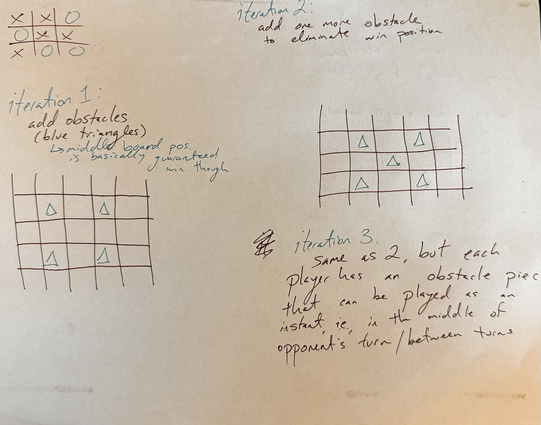 X X O
O X X
X O O
iteration 1:
add obstacles
(blue triangles)
↳ middle board pos.
is basically guaranteed
win though
iteration 2:
add one more obstacle
to eliminate win position
iteration 3:
Same as 2, but each
player has an obstacle piec
that can be played as an
instant, ie, in the middle of
opponent's turn/between turns